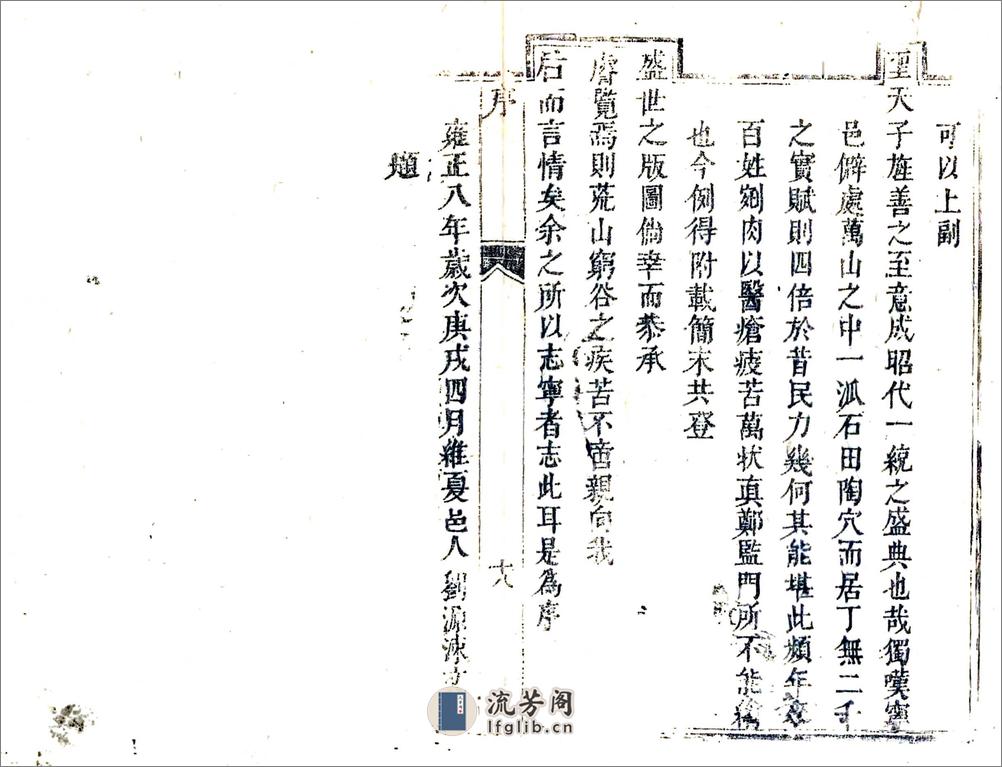 可以上副
聖天子旌善之至意成昭代一統之盛典也哉獨嘆寧
邑僻處萬山之中一派石田陶穴而居丁無二千
之實賦則四倍於昔民力幾何其能堪此頻年
百姓剜肉以醫瘡疲苦萬狀真鄭監門所不能繪
也今例得附載簡末共登
盛世之版圖倘幸而恭承
睿覽焉則荒山窮谷之疾苦不啻親向我
后而言情矣余之所以志寧者志此耳是為序
序
十八
雍正八年歲次庚戌四月維夏邑人劉源涑
題
流芳阁
lfglib.cn